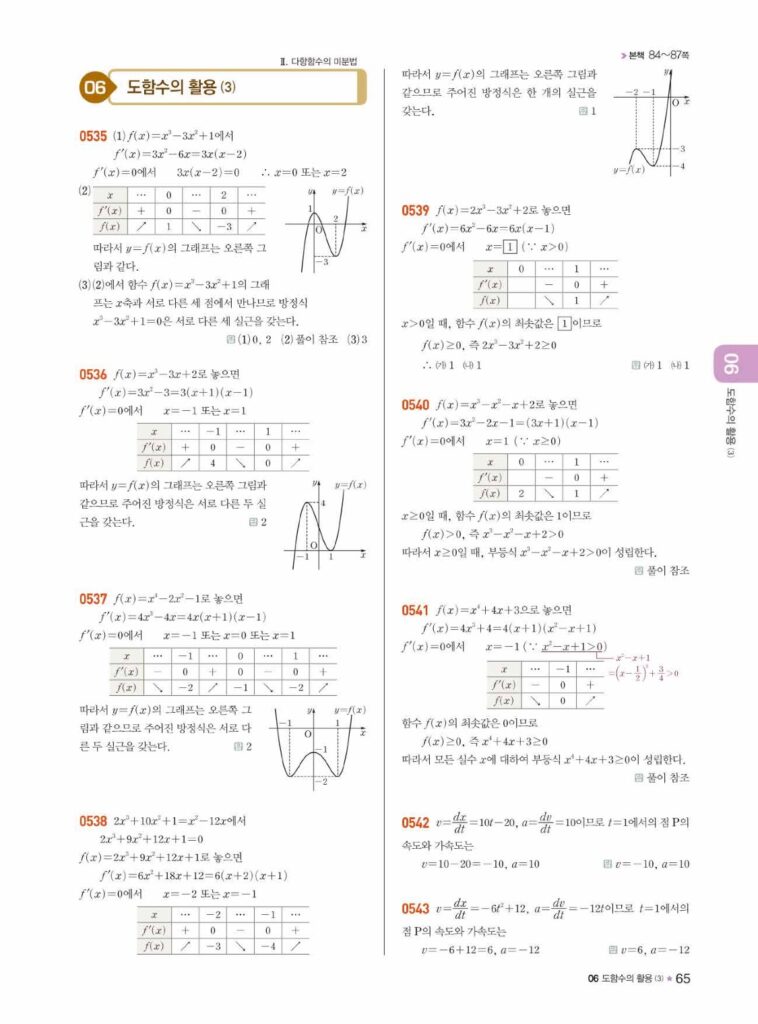 Ⅱ. 다항함수의 미분법
본책 84~87쪽
06 도함수의 활용 (3)
0535 (1) f(x)=x³-3x²+1에서
f'(x)=3x²-6x=3x(x-2)
f'(x)=0에서 3x(x-2)=0 ∴ x=0 또는 x=2
(2)
x … 0 … 2 …
f'(x) + 0 - 0 +
f(x) ↗ 1 ↘ -3 ↗
y y=f(x)
1
2
O x
-3
따라서 y=f(x)의 그래프는 오른쪽 그
림과 같다.
(3) (2)에서 함수 f(x)=x³-3x²+1의 그래
프는 x축과 서로 다른 세 점에서 만나므로 방정식
x³-3x²+1=0은 서로 다른 세 실근을 갖는다.
답 (1) 0, 2 (2) 풀이 참조 (3) 3
0536 f(x)=x³-3x+2로 놓으면
f'(x)=3x²-3=3(x+1)(x-1)
f'(x)=0에서 x=-1 또는 x=1
x … -1 … 1 …
f'(x) + 0 - 0 +
f(x) ↗ 4 ↘ 0 ↗
따라서 y=f(x)의 그래프는 오른쪽 그림과
같으므로 주어진 방정식은 서로 다른 두 실
근을 갖는다. 답 2
y y=f(x)
4
O
-1 1 x
0537 f(x)=x⁴-2x²-1로 놓으면
f'(x)=4x³-4x=4x(x+1)(x-1)
f'(x)=0에서 x=-1 또는 x=0 또는 x=1
x … -1 … 0 … 1 …
f'(x) - 0 + 0 - 0 +
f(x) ↘ -2 ↗ -1 ↘ -2 ↗
따라서 y=f(x)의 그래프는 오른쪽 그
림과 같으므로 주어진 방정식은 서로 다
른 두 실근을 갖는다. 답 2
y y=f(x)
-1 1
O x
-1
-2
0538 2x³+10x²+1=x²-12x에서
2x³+9x²+12x+1=0
f(x)=2x³+9x²+12x+1로 놓으면
f'(x)=6x²+18x+12=6(x+2)(x+1)
f'(x)=0에서 x=-2 또는 x=-1
x … -2 … -1 …
f'(x) + 0 - 0 +
f(x) ↗ -3 ↘ -4 ↗
따라서 y=f(x)의 그래프는 오른쪽 그림과
같으므로 주어진 방정식은 한 개의 실근을
갖는다. 답 1
y
-2 -1
O x
-3
-4
y=f(x)
0539 f(x)=2x³-3x²+2로 놓으면
f'(x)=6x²-6x=6x(x-1)
f'(x)=0에서 x=1 (∵ x>0)
x 0 … 1 …
f'(x) - 0 +
f(x) ↘ 1 ↗
x>0일 때, 함수 f(x)의 최솟값은 1이므로
f(x)≥0, 즉 2x³-3x²+2≥0
∴ ㈎ 1 ㈏ 1 답 ㈎ 1 ㈏ 1
0540 f(x)=x³-x²-x+2로 놓으면
f'(x)=3x²-2x-1=(3x+1)(x-1)
f'(x)=0에서 x=1 (∵ x≥0)
x 0 … 1 …
f'(x) - 0 +
f(x) 2 ↘ 1 ↗
x≥0일 때, 함수 f(x)의 최솟값은 1이므로
f(x)>0, 즉 x³-x²-x+2>0
따라서 x≥0일 때, 부등식 x³-x²-x+2>0이 성립한다.
답 풀이 참조
0541 f(x)=x⁴+4x+3으로 놓으면
f'(x)=4x³+4=4(x+1)(x²-x+1)
f'(x)=0에서 x=-1 (∵ x²-x+1>0)
x²-x+1
=(x-1/2)²+3/4>0
x … -1 …
f'(x) - 0 +
f(x) ↘ 0 ↗
함수 f(x)의 최솟값은 0이므로
f(x)≥0, 즉 x⁴+4x+3≥0
따라서 모든 실수 x에 대하여 부등식 x⁴+4x+3≥0이 성립한다.
답 풀이 참조
0542 v=dx/dt=10t-20, a=dv/dt=10이므로 t=1에서의 점 P의
속도와 가속도는
v=10-20=-10, a=10 답 v=-10, a=10
0543 v=dx/dt=-6t²+12, a=dv/dt=-12t이므로 t=1에서의
점 P의 속도와 가속도는
v=-6+12=6, a=-12 답 v=6, a=-12
06
도함수의 활용 (3)
06 도함수의 활용 (3) ★ 65